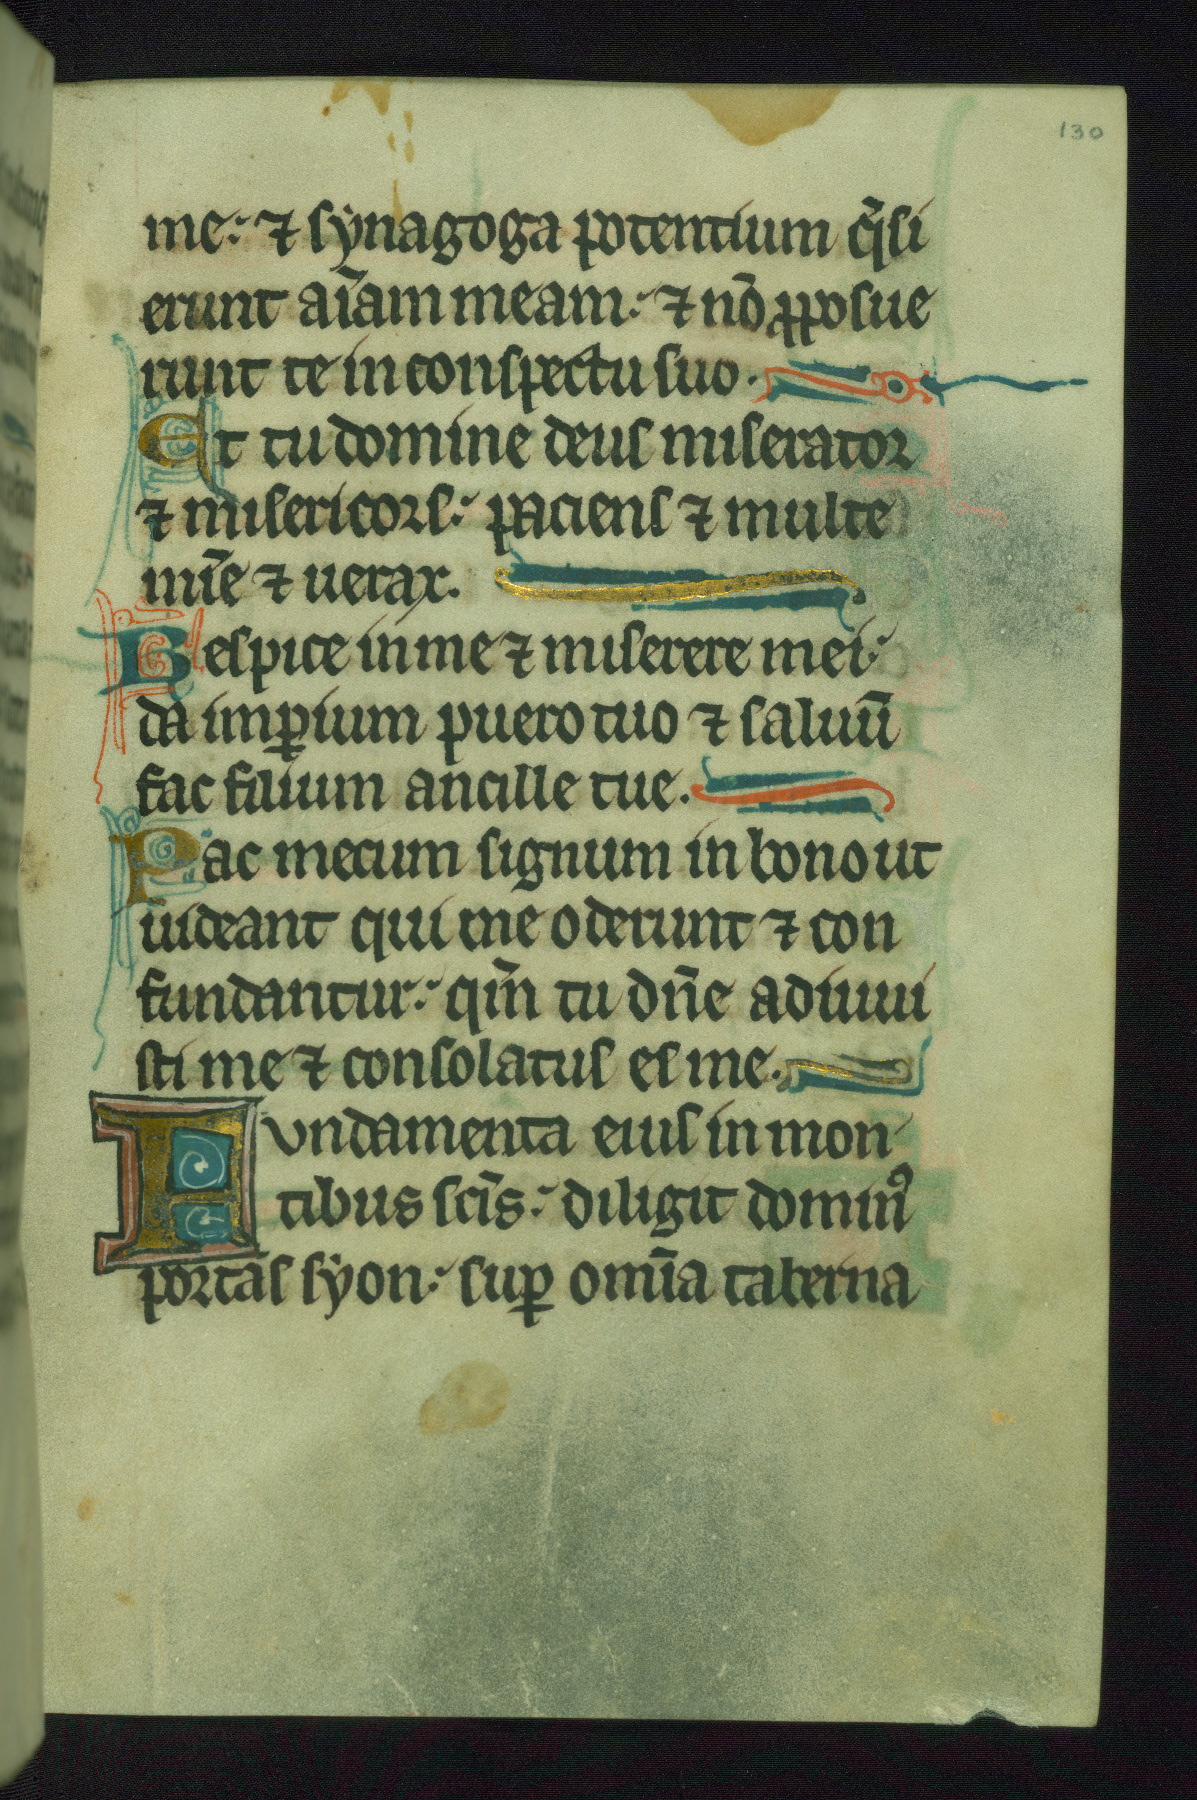 130
me: ⁊ synagoga potentium q̄si
erunt aīam meam: ⁊ nō ꝓposue
runt te in conspectu suo.
Et tu domine deus miserator
⁊ misericors: paciens ⁊ multe
mīe ⁊ uerax.
Respice in me ⁊ miserere mei:
da imꝑium puero tuo ⁊ saluū
fac filium ancille tue.
Fac mecum signum in bono ut
uideant qui me oderunt ⁊ con
fundantur: qm̄ tu dn̄e adiuui
sti me ⁊ consolatus es me.
Fundamenta eius in mon-
tibus scīs: diligit dominꝰ
portas syon: suꝑ omīa taberna